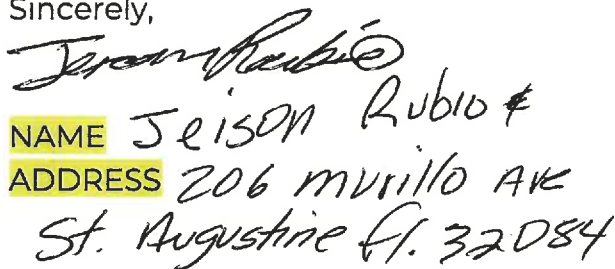 Sincerely,
NAME Jeison Rubio &
ADDRESS 206 murillo Ave
St. Augustine fl. 32084